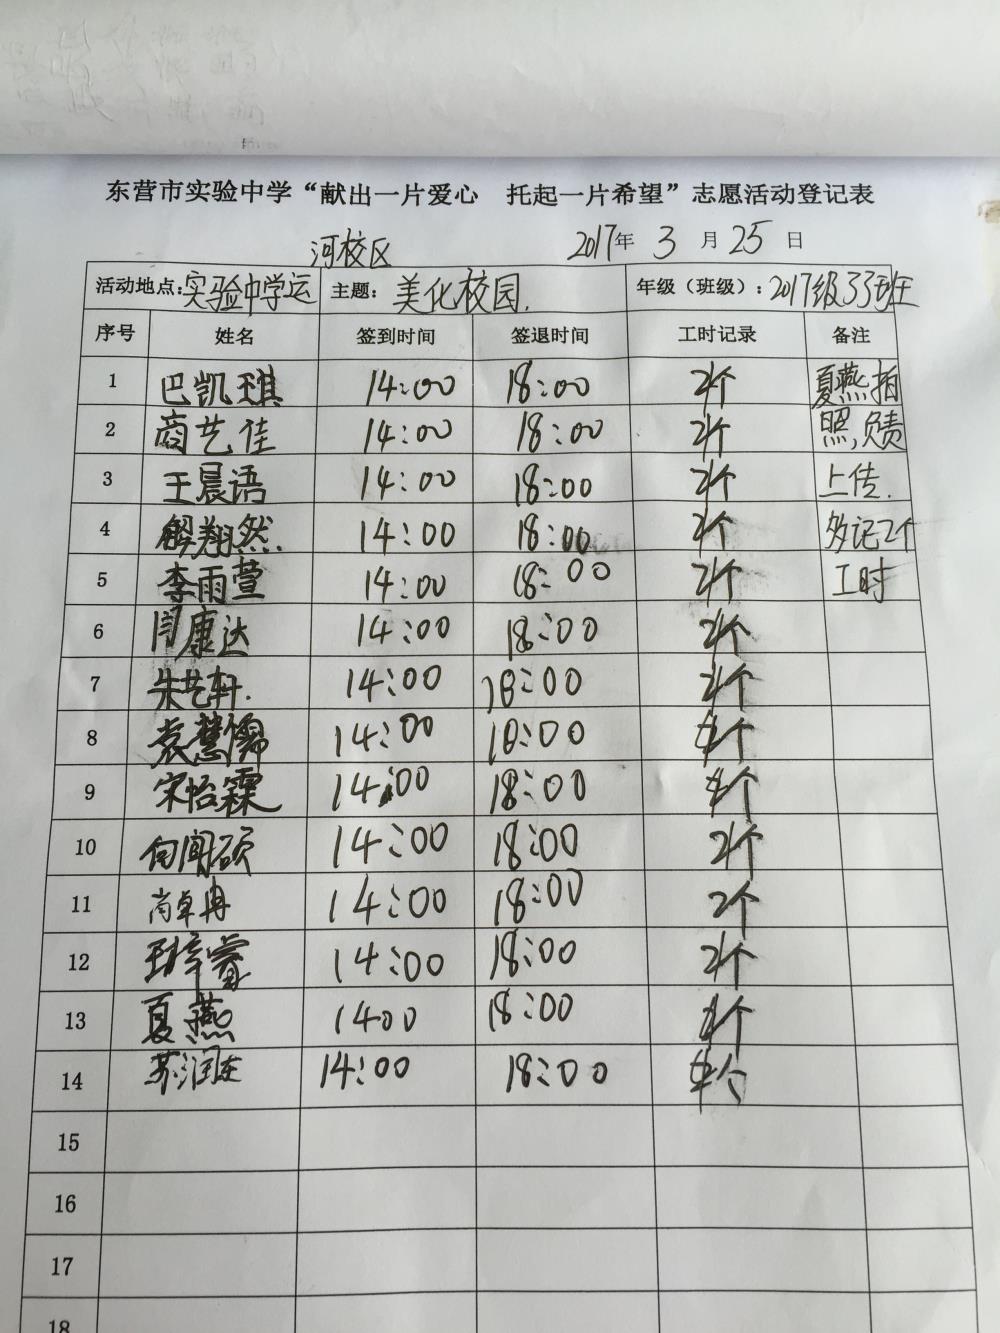 东营市实验中学“献出一片爱心 托起一片希望”志愿活动登记表
河校区 2017年 3 月 25 日
活动地点:实验中学运 主题: 美化校园. 年级（班级）: 2017级33班
序号 姓名 签到时间 签退时间 工时记录 备注
1 巴凯琪 14:00 18:00 2个 夏燕拍
2 商艺佳 14:00 18:00 2个 照,负责
3 王晨语 14:00 18:00 2个 上传.
4 解翔然. 14:00 18:00 2个 多记2个
5 李雨萱 14:00 18:00 2个 工时
6 闫康达 14:00 18:00 2个
7 朱艺轩. 14:00 18:00 2个
8 袁慧 14:00 18:00 个
9 宋怡霖 14:00 18:00 个
10 闻硕 14:00 18:00 2个
11 尚卓冉 14:00 18:00 2个
12 睿 14:00 18:00 2个
13 夏燕 1400 18:00 个
14 苏润 14:00 18:00 个
15
16
17
18